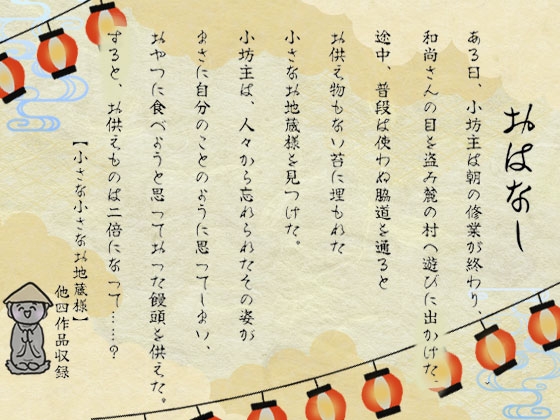 おはなし
ある日、小坊主は朝の修業が終わり、
和尚さんの目を盗み麓の村へ遊びに出かけた。
途中、普段は使わぬ脇道を通ると
お供え物もない苔に埋もれた
小さなお地蔵様を見つけた。
小坊主は、人々から忘れられたその姿が
まさに自分のことのように思ってしまい、
おやつに食べようと思っておった饅頭を供えた。
すると、お供えものは二倍になって……？
【小さな小さなお地蔵様】
他四作品収録